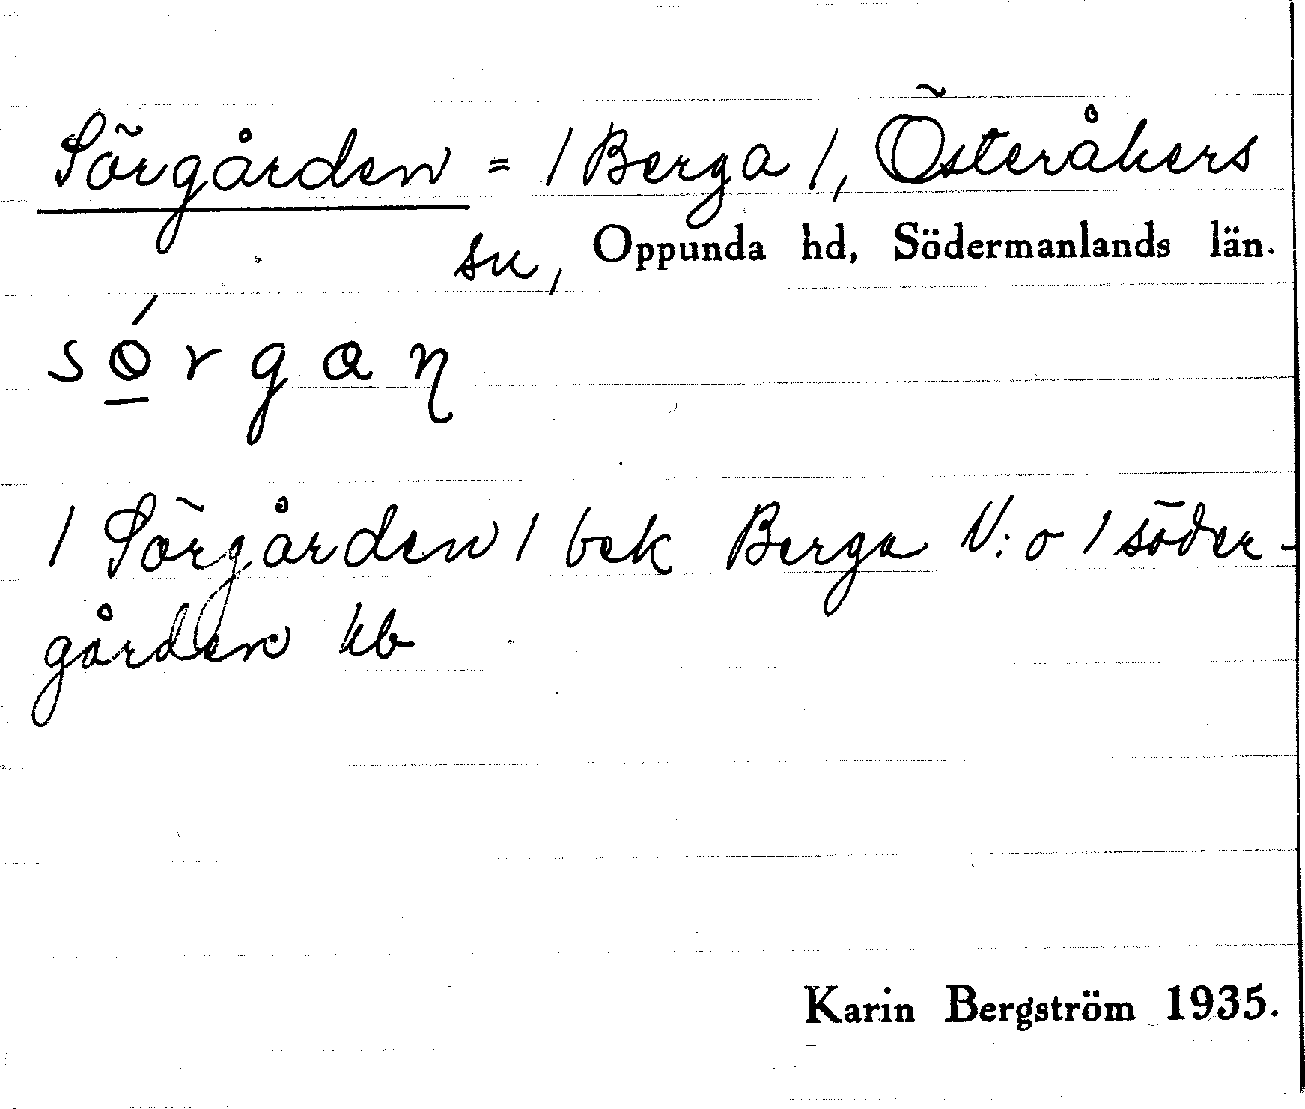 Sörgården = / Berga /, Österåkers
sn, Oppunda hd, Södermanlands län.
sǿ̱rgaɳ
/ Sörgården / bek Berga N:o / söder-
gården kb
Karin Bergström 1935.